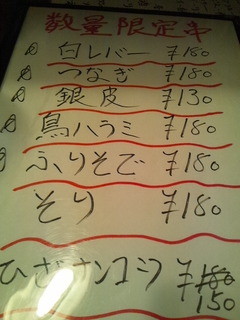 数量限定串
白レバー ¥180
つなぎ ¥180
銀皮 ¥130
鳥ハラミ ¥180
ふりそで ¥180
そり ¥180
ひざナンコツ ¥180
150